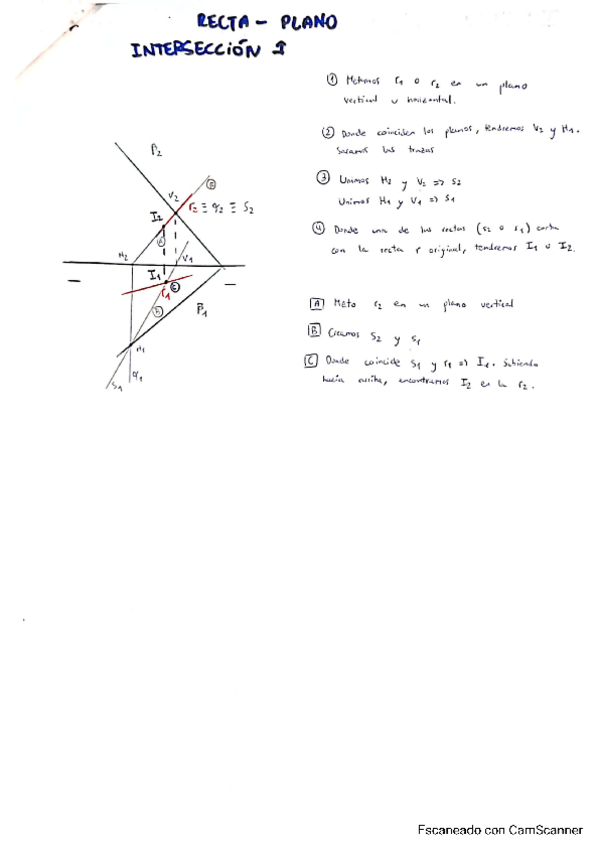 RECTA - PLANO
INTERSECCIÓN I
① Metemos r1 o r2 en un plano
vertical u horizontal.
② Donde coinciden los planos, tendremos V2 y H1.
Sacamos las trazas
③ Unimos H2 y V2 => S2
Unimos H1 y V1 => S1
④ Donde una de las rectas (S2 o S1) corta
con la recta r original, tendremos I1 o I2.
A Meto r2 en un plano vertical
B Creamos S2 y S1
C Donde coincide S1 y r1 => I1. Subiendo
hacia arriba, encontramos I2 en la r2.
β2
V2
B
r2 ≡ α2 ≡ S2
I2
A
H2
V1
I1
C
r1
B
β1
H1
α1
S1
Escaneado con CamScanner